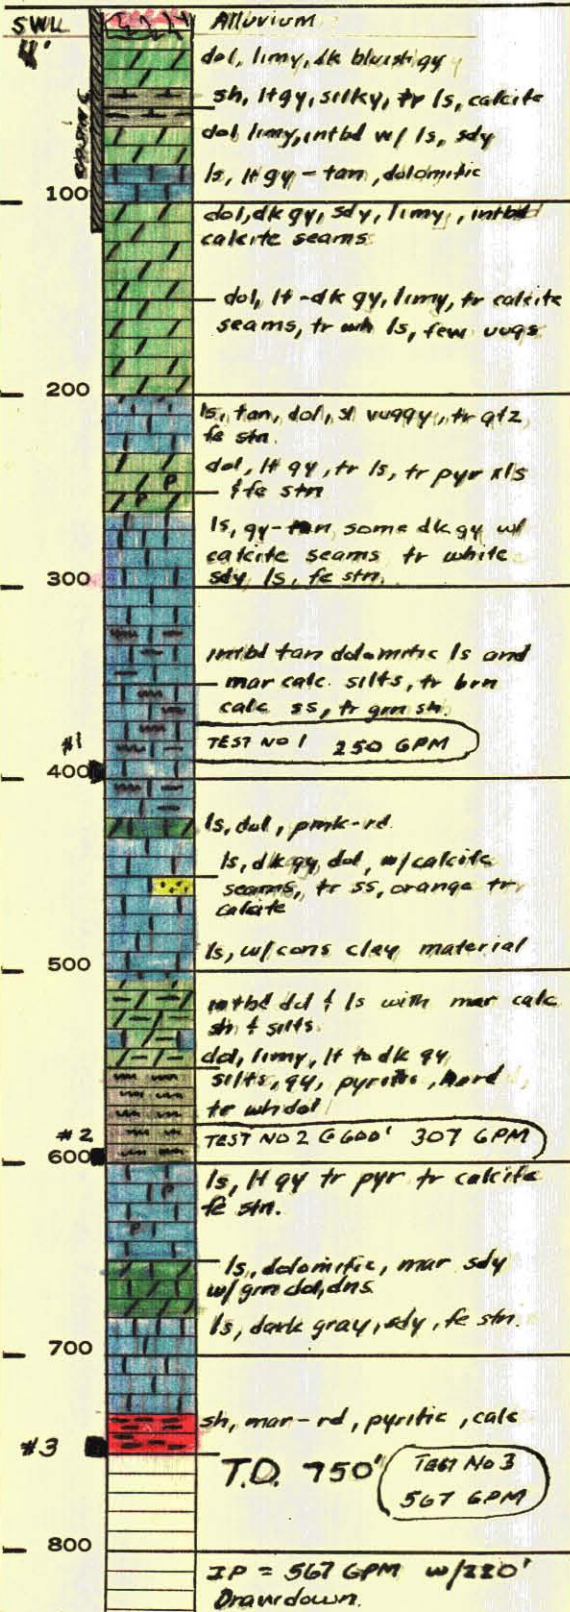 SWL
4'
Alluvium
dol, limy, dk bluish gy
sh, lt gy, silky, tr ls, calcite
CASING
dol limy, intbd w/ ls, sdy
ls, lt gy - tan, dolomitic
100
dol, dk gy, sdy, limy, intbd
calcite seams
dol, lt-dk gy, limy, tr calcite
seams, tr wh ls, few vugs
200
ls, tan, dol, sl vuggy, tr qtz
fe stn.
dol, lt gy, tr ls, tr pyr xls
& fe stn
P
P
ls, gy-tan some dk gy w/
calcite seams tr white
sdy ls, fe stn.
300
intbd tan dolomitic ls and
mar calc. silts, tr brn
calc ss, tr grn sh.
#1
TEST NO 1 250 GPM
400
ls, dol, pink-rd
ls, dk gy, dol, w/calcite
seams, tr ss, orange tr
calcite
ls, w/cons clay material
500
intbd dol & ls with mar calc
sh & silts.
dol, limy, lt to dk gy
silts, gy, pyritic, hard
tr wh dol
#2
TEST NO 2 @ 600' 307 GPM
600
ls, lt gy tr pyr tr calcite
fe stn.
P
P
ls, dolomitic, mar sdy
w/ grn dol, dns
ls, dark gray, sdy, fe stn.
700
sh, mar-rd, pyritic, calc
#3
T.D. 750'
TEST NO 3
567 GPM
800
IP = 567 GPM w/220'
Drawdown.